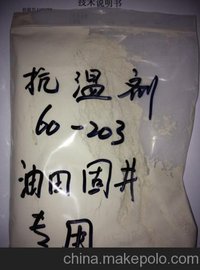 技术说明书
抗温剂
60-203
油田固井
专用
china.makepolo.com